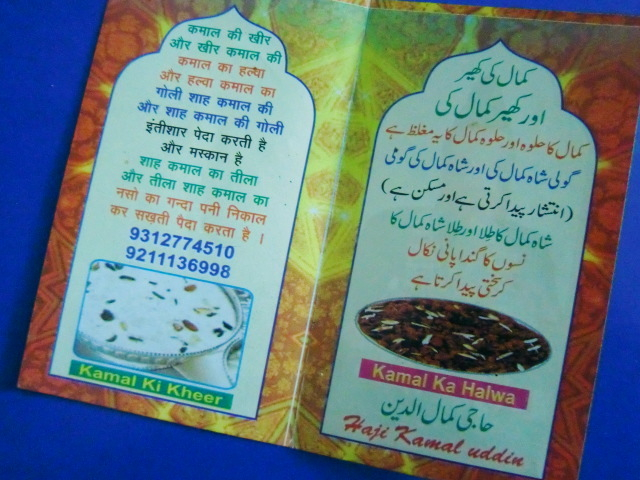 कमाल की खीर
और खीर कमाल की
कमाल का हल्वा
और हल्वा कमाल का
गोली शाह कमाल की
और शाह कमाल की गोली
इंतीशार पैदा करती है
और मस्कान है
शाह कमाल का तीला
और तीला शाह कमाल का
नसो का गन्दा पनी निकाल
कर सखती पैदा करता है ।
9312774510
9211136998
Kamal Ki Kheer
کمال کی کھیر
اور کھیر کمال کی
کمال کا حلوہ اور حلوہ کمال کا یہ مغلظ ہے
گولی شاہ کمال کی اور شاہ کمال کی گولی
(انتشار پیدا کرتی ہے اور مسکن ہے)
شاہ کمال کا طلا اور طلا شاہ کمال کا
نسوں کا گندا پانی نکال
کر سختی پیدا کرتا ہے
Kamal Ka Halwa
حاجی کمال الدین
Haji Kamal uddin